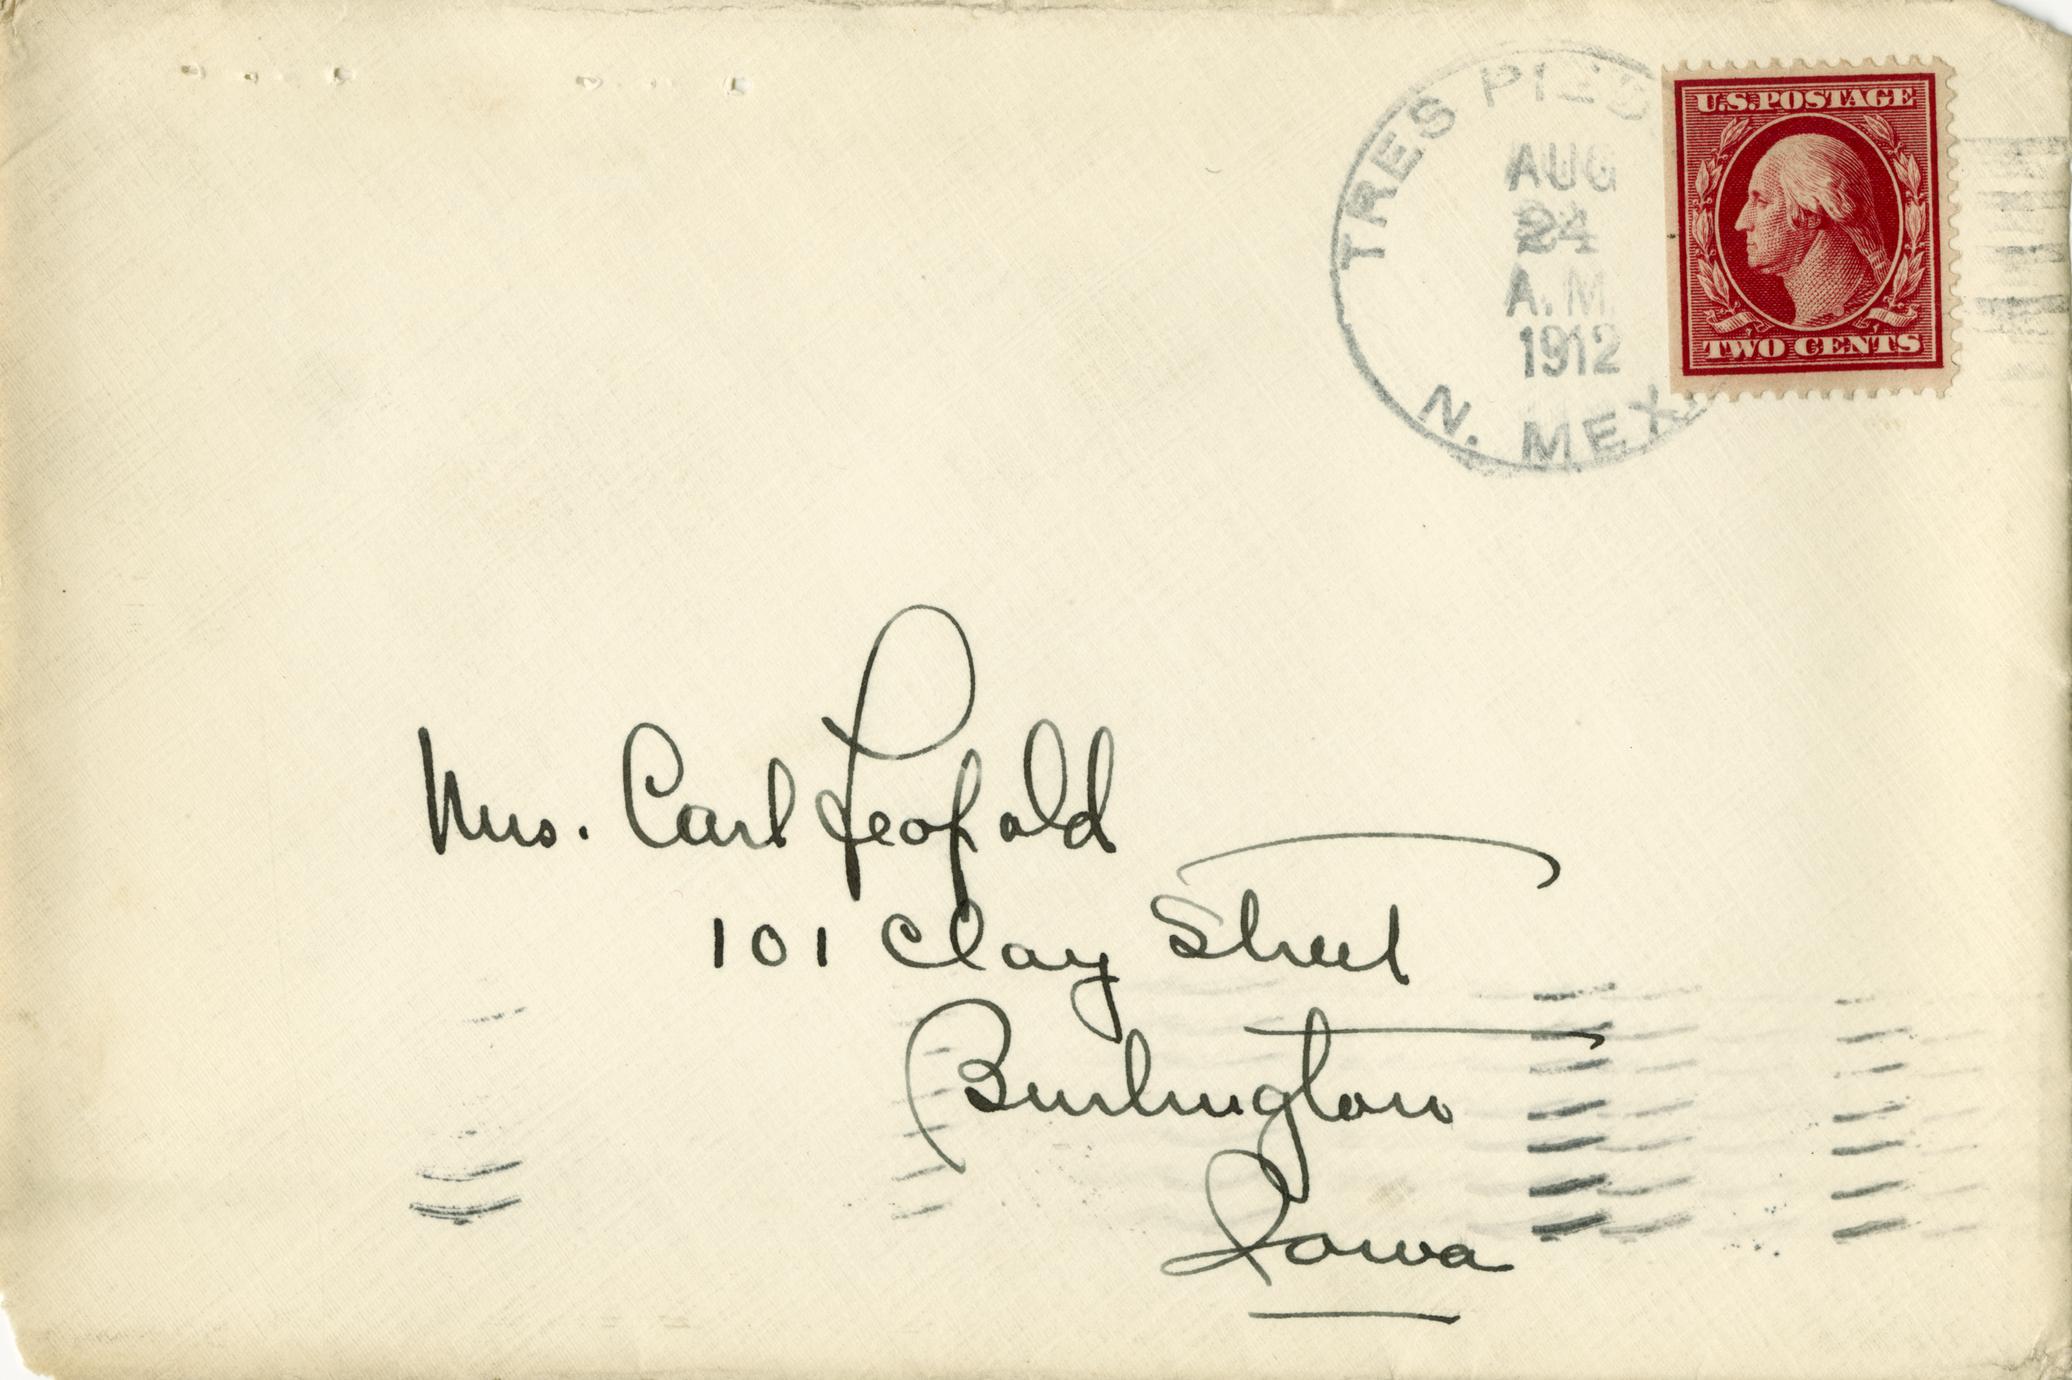 TRES PIED
AUG
24
A.M.
1912
N. MEX.
U.S.POSTAGE
TWO CENTS
Mrs. Carl Leopold
101 Clay Street
Burlington
Iowa